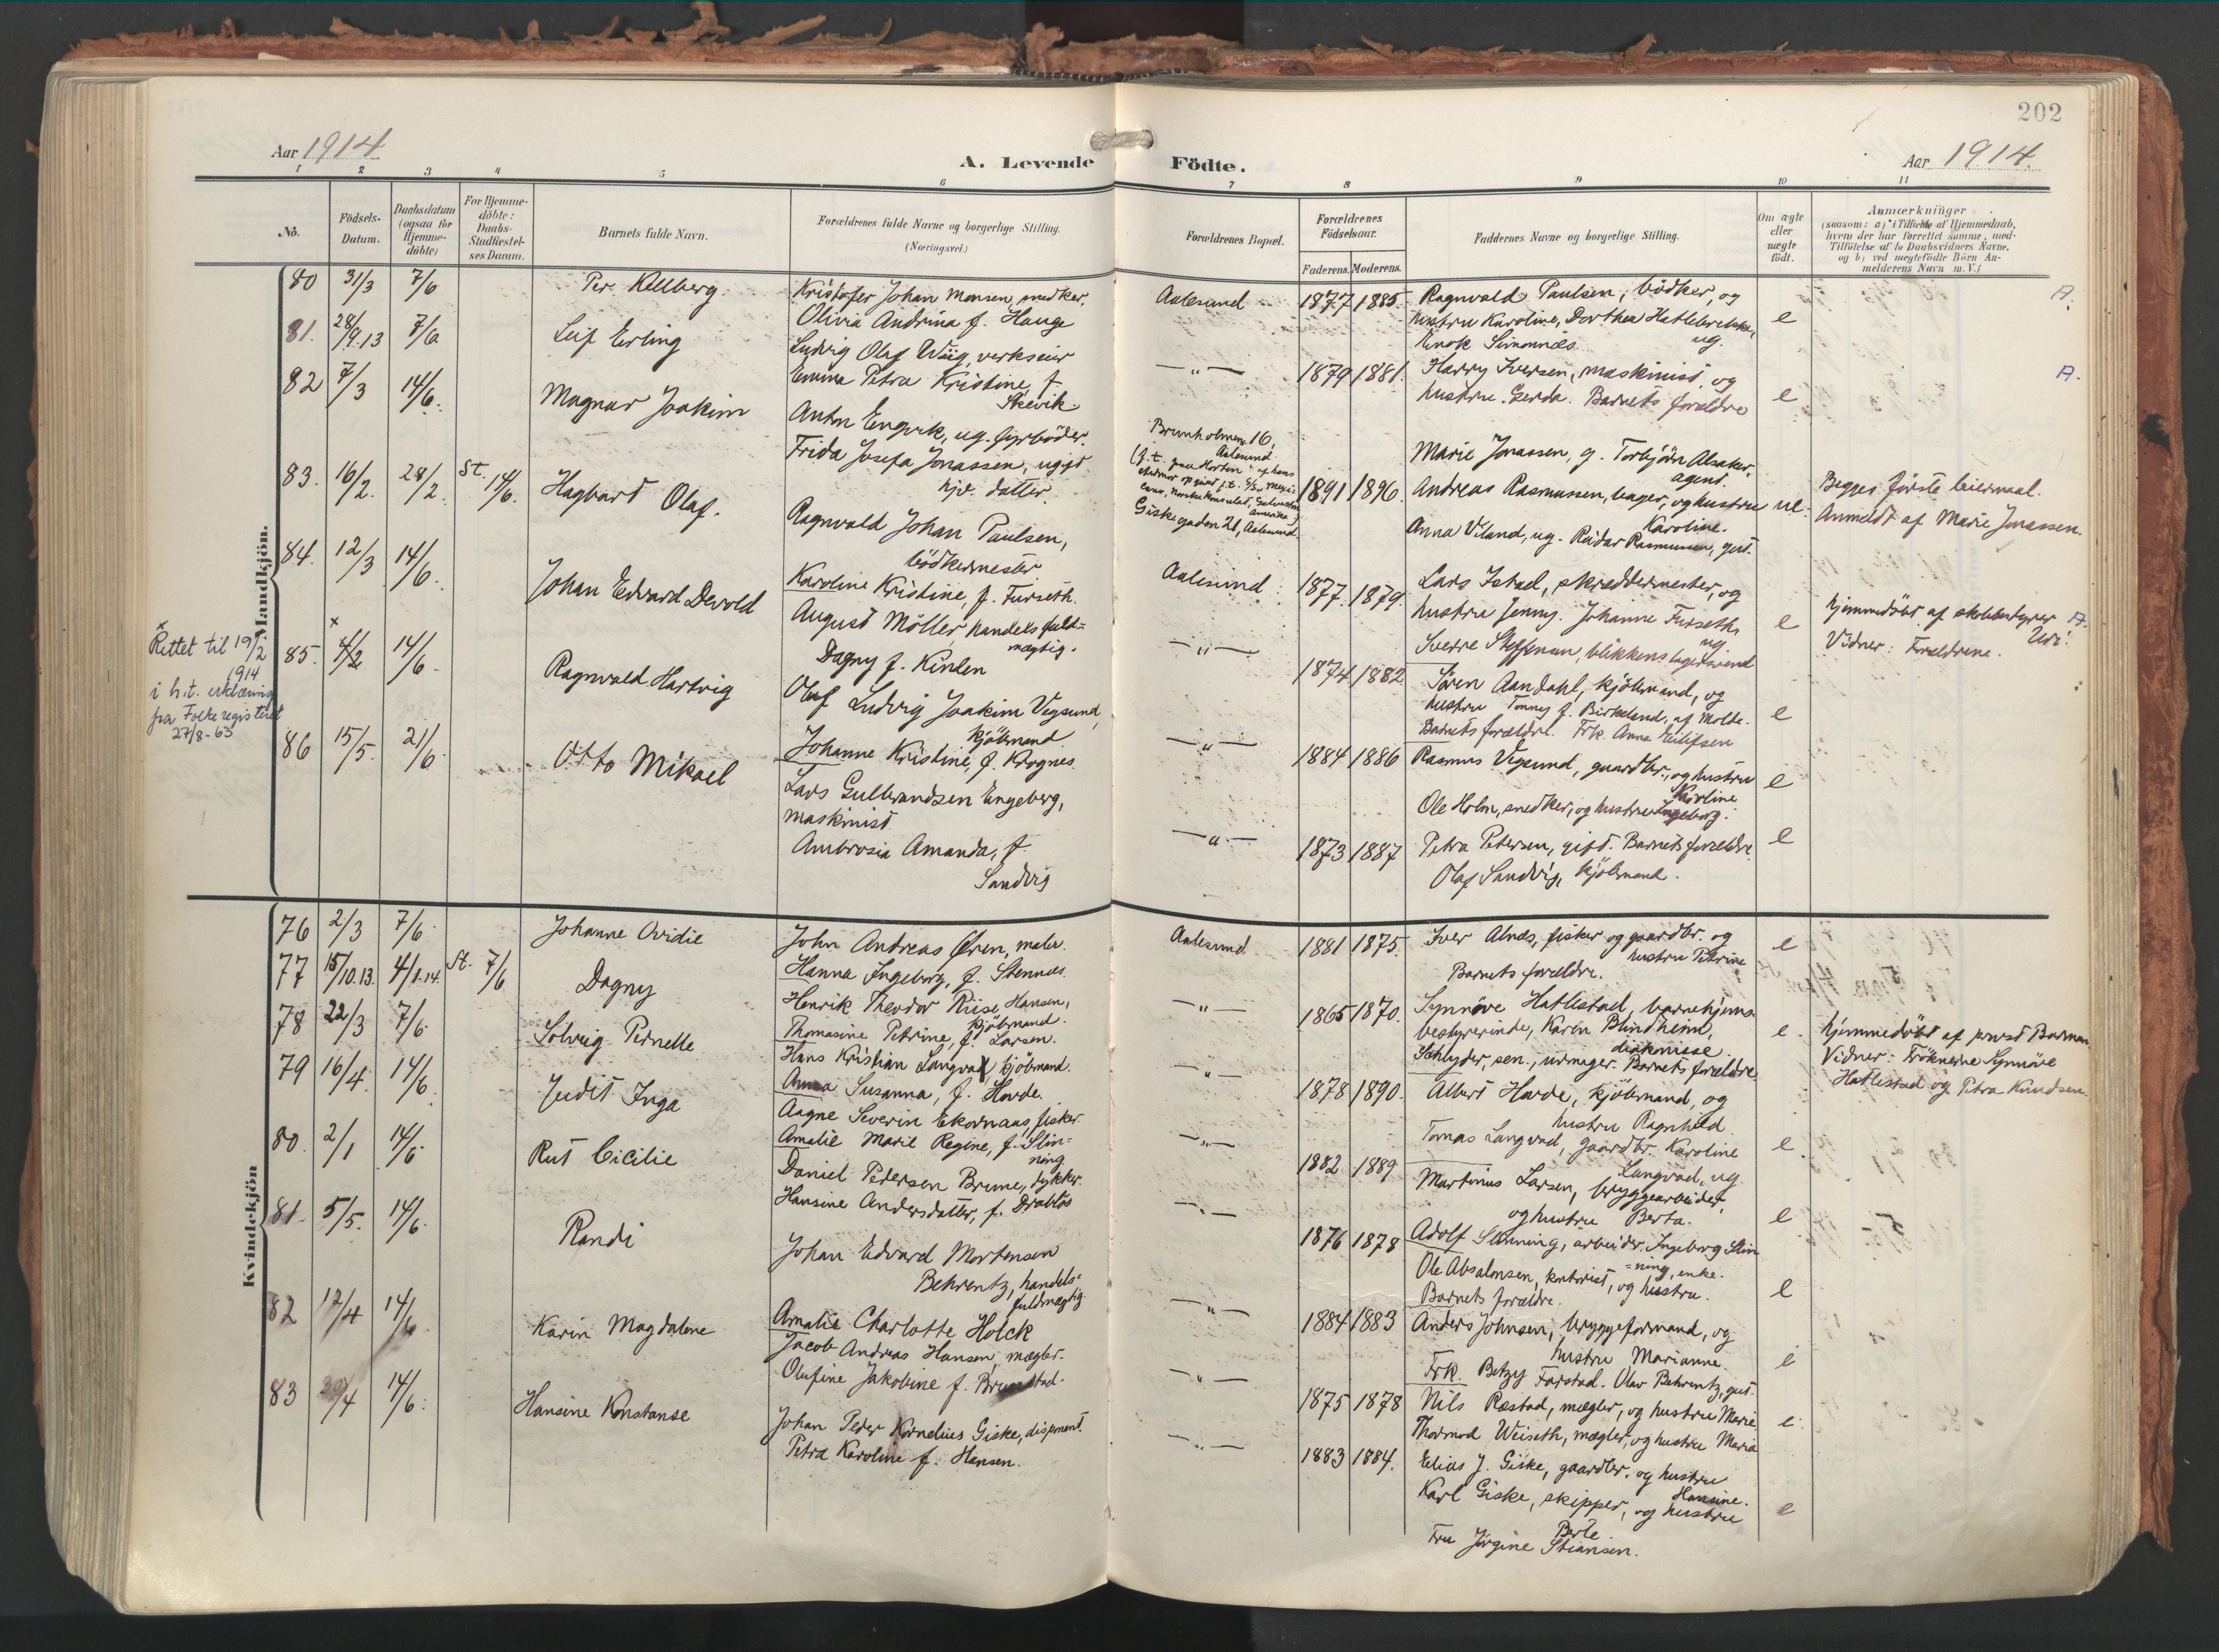 202
Aar 1914
A. Levende
Födte.
Aar 1914.
1 2 3 4 5 6 7 8 9 10 11
No.
Födsels-
Datum.
Daabsdatum
(ogsaa for
Hjemme-
döbte)
For Hjemme-
döbte:
Daabs-
Stadfæstel-
ses Datum.
Barnets fulde Navn.
Forældrenes fulde Navne og borgerlige Stilling.
(Næringsvei.)
Forældrenes Bopæl.
Forældrenes
Födselsaar.
Faderens. Moderens.
Faddernes Navne og borgerlige Stilling.
Om ægte
eller
uægte
födt.
Anmærkninger
(saasom: a) i Tilfælde af Hjemmedaab,
hvem der har forrettet samme, med
Tilföielse af to Daabsvidners Navne.
og b) ved uægtefödte Börn An-
melderens Navn m. V.)
Mandkjön.
80 31/3 7/6
Per Kellberg
Kristofer Johan Monsen, snedker.
Olivia Andrina f. Hauge
Aalesund
1877 1885.
Ragnvald Paulsen, bödker, og
hustru Karoline, Dorthea
ug.
Enok Simonnæs.
e
A.
81. 28/9.13 7/6
Leif Erling
Ludvig Olaf Wiig, verkseier
Emma Petra Kristine, f.
Skevik.
— " —
1879 1881.
Harry Iversen, maskinist, og
hustru Gerda. Barnets forældre
e
A.
82 7/3 14/6.
Magnar Joakim
Anton Engvik, ug. fyrböder.
Frida Josefa Jonassen, ugift
hjv. datter.
Brunholmen 16,
Aalesund
Giskegaden 21, Aalesund.
1891 1896.
Marie Jonassen, g. Torbjörn Alsaker,
agent.
Andreas Rasmussen, bager, og hustru
Karoline.
Anna Viland, ug. Reidar Rasmussen, gut.
ue.
Begges förste leiermaal.
Anmeldt af Marie Jonassen.
83. 16/2. 28/2. St. 14/6.
Hagbart Olaf.
Ragnvald Johan Paulsen,
bödkermester
Karoline Kristine, f. Furseth.
Aalesund
1877. 1879.
Lars Istad, skræddermester, og
hustru Jenny. Johanne Furseth,
ug.
Sverre Steffensen, blikkenslagersvend
e
Hjemmedöbt af skolebestyrer
Vidner: Forældrene.
A.
84. 12/3 14/6.
Johan Edvard Devold
August Möller, handelsfuld-
mægtig.
Dagny f. Kinlen
— " —
1874 1882
Sören Aandahl, kjöbmand, og
hustru Tommy f. Birkeland, af Molde.
Barnets forældre. Frk. Anna Eilifsen
e
85. x 4/2 14/6.
Ragnvald Hartvig
Olaf Ludvig Joakim Vegsund,
kjöbmand
Johanne Kristine, f. Krognes.
— " —
1884 1886
Rasmus Vegsund, gaardbr., og hustru
Karoline.
Ole Holm, snedker, og hustru Ingeborg.
e
x
Rettet til 19/2
1914
i h.t. erklæring
fra Folkeregisteret
27/8-63
86 15/5. 21/6
Otto Mikael
Lars Gulbrandsen Engeberg,
maskinist
Ambrosia Amanda, f.
Sandvig
— " —
1873 1887
Petra Petersen, gift. Barnets forældre.
Olaf Sandvig, kjöbmand.
e
Kvindekjön
76 2/3 7/6
Johanne Ovidie
John Andreas Ören, maler.
Hanna Ingeborg, f. Stennæs.
Aalesund
1881 1875.
Iver Alnæs, fisker og gaardbr. og
hustru Petrine
Barnets forældre.
e
77 15/10.13. 4/1.14 St. 7/6
Dagny
Henrik Theodor Riise Hansen,
kjöbmand.
Thomasine Petrine, f. Larsen.
— " —
1865 1870.
Synnöve Hatlestad, barnehjems-
bestyrerinde, Karin Blindheim,
diakonisse
Schlyder, sen., urmager. Barnets forældre.
e.
Hjemmedöbt af provst Barman
Vidner: Fröknerne Synnöve
Hatlestad og Petra Knudsen.
78 22/3 7/6
Solveig Pernelle
Hans Kristian Langva, kjöbmand.
Anna Susanna, f. Hovde.
— " —
1878 1890.
Albert Hovde, kjöbmand, og
hustru Ragnhild
Tomas Langvad, gaardbr. Karoline
Langvad, ug.
e.
79 16/4. 14/6
Judit Inga
Aagne Severin Ekornaas, fisker.
Amalie Marie Regine, f. Slin-
ning
— " —
1882 1889
Martinus Larsen, bryggearbeider,
og hustru Berta.
Adolf Slinning, arbeider. Ingeborg Slin
-ning, enke.
e
80. 2/1 14/6.
Rut Cicilie
Daniel Pedersen Brune, dykker.
Hansine Andersdatter, f. Drablös
— " —
1876 1878
Ole Absalonsen, kontorist, og hustru.
Barnets forældre.
e
81. 5/5. 14/6.
Randi
Johan Edvard Mortensen
Behrentz, handels-
fuldmægtig
Amalie Charlotte Holck
— " —
1884 1883
Anders Johnsen, bryggeformand, og
hustru Marianne.
Frk. Betzy Farstad. Olav Behrentz, gut.
e
82 17/4 14/6
Karin Magdalene
Jacob Andreas Hansen, mægler.
Olufine Jakobine f. Brunstad.
— " —
1875 1878
Nils Ræstad, mægler, og hustru Marie
Thormod Weiseth, mægler, og hustru Maria
e.
83 30/4 14/6.
Hansine Konstanse
Johan Peder Kornelius Giske, disponent.
Petra Karoline f. Hansen.
— " —
1883 1884.
Elias J. Giske, gaardbr. og hustru
Hansine.
Karl Giske, skipper, og hustru
Berte.
Fru Jörgine Stiansen.
e